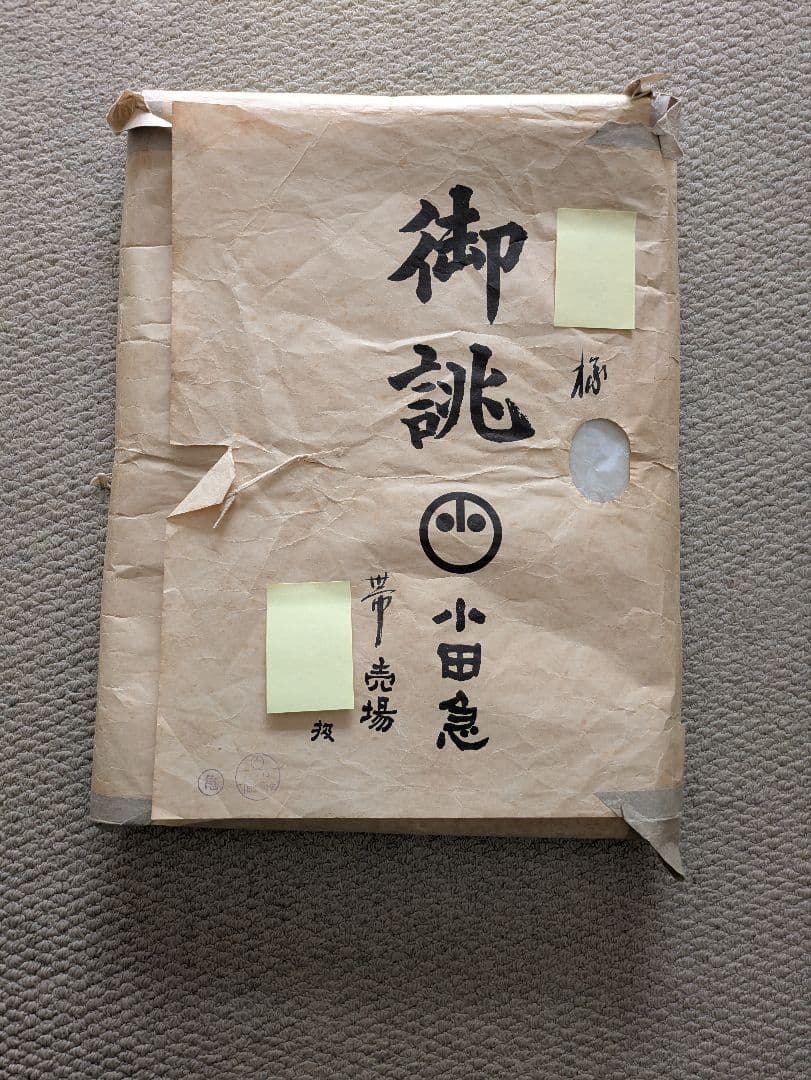 様
御誂
小田急
帯売場
扱
急